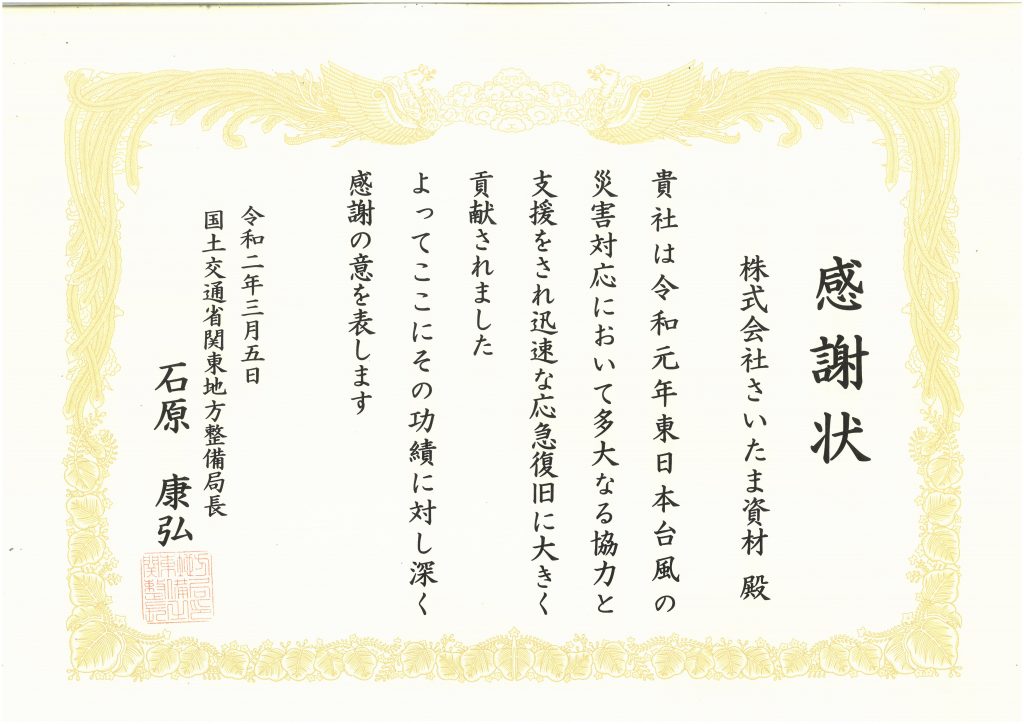 感謝状
株式会社さいたま資材 殿
貴社は令和元年東日本台風の
災害対応において多大なる協力と
支援をされ迅速な応急復旧に大きく
貢献されました
よってここにその功績に対し深く
感謝の意を表します
令和二年三月五日
国土交通省関東地方整備局長
石原 康弘